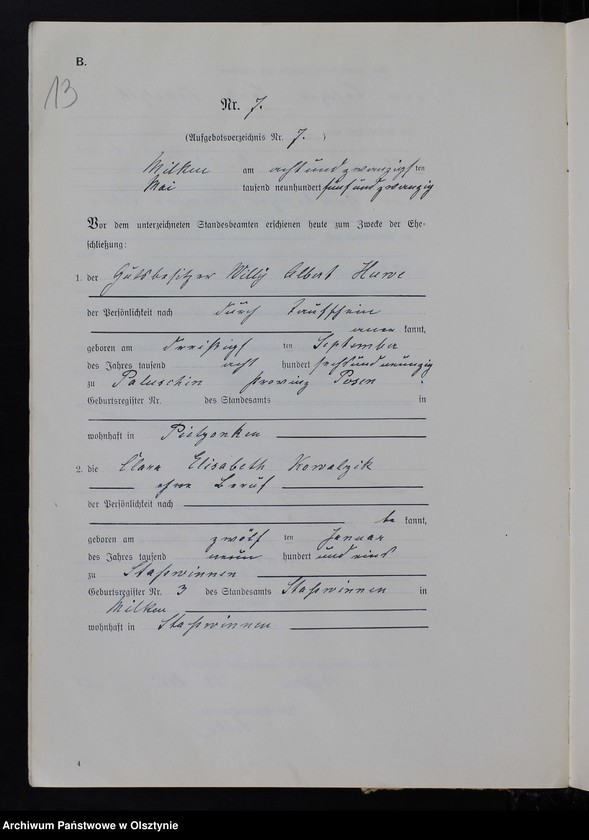 B.
13
Nr. 7.
(Aufgebotsverzeichnis Nr. 7. )
Milken am acht und zwanzigsten
Mai tausend neunhundert fünf und zwanzig
Vor dem unterzeichneten Standesbeamten erschienen heute zum Zwecke der Ehe-
schließung:
1. der Gutsbesitzer Willy Albert Huwe
der Persönlichkeit nach durch Taufschein
aner kannt,
geboren am dreißigsten September
des Jahres tausend acht hundert sechs und neunzig
zu Paluschin Provinz Posen
Geburtsregister Nr. des Standesamts in
wohnhaft in Pietzonken
2. die Clara Elisabeth Kowalzik
ohne Beruf
der Persönlichkeit nach
be kannt,
geboren am zwölf ten Januar
des Jahres tausend neun hundert und eins
zu Staßwinnen
Geburtsregister Nr. 3 des Standesamts Staßwinnen in
Milken
wohnhaft in Staßwinnen
4
Archiwum Państwowe w Olsztynie